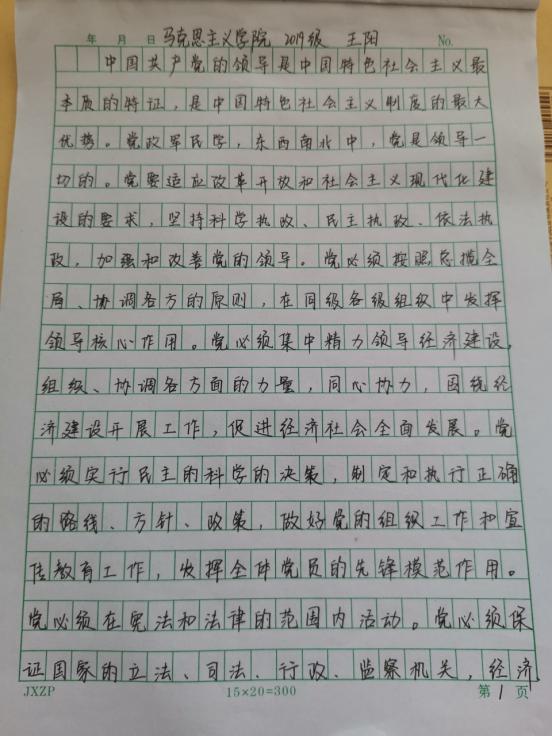 年 月 日 马克思主义学院 2019级 王阳 No.
中国共产党的领导是中国特色社会主义最
本质的特证，是中国特色社会主义制度的最大
优势。党政军民学，东西南北中，党是领导一
切的。党要适应改革开放和社会主义现代化建
设的要求，坚持科学执政、民主执政、依法执
政，加强和改善党的领导。党必须按照总揽全
局、协调各方的原则，在同级各级组织中发挥
领导核心作用。党必须集中精力领导经济建设，
组织、协调各方面的力量，同心协力，围绕经
济建设开展工作，促进经济社会全面发展。党
必须实行民主的科学的决策，制定和执行正确
的路线、方针、政策，做好党的组织工作和宣
传教育工作，发挥全体党员的先锋模范作用。
党必须在宪法和法律的范围内活动。党必须保
证国家的立法、司法、行政、监察机关，经济
JXZP 15×20=300 第1页